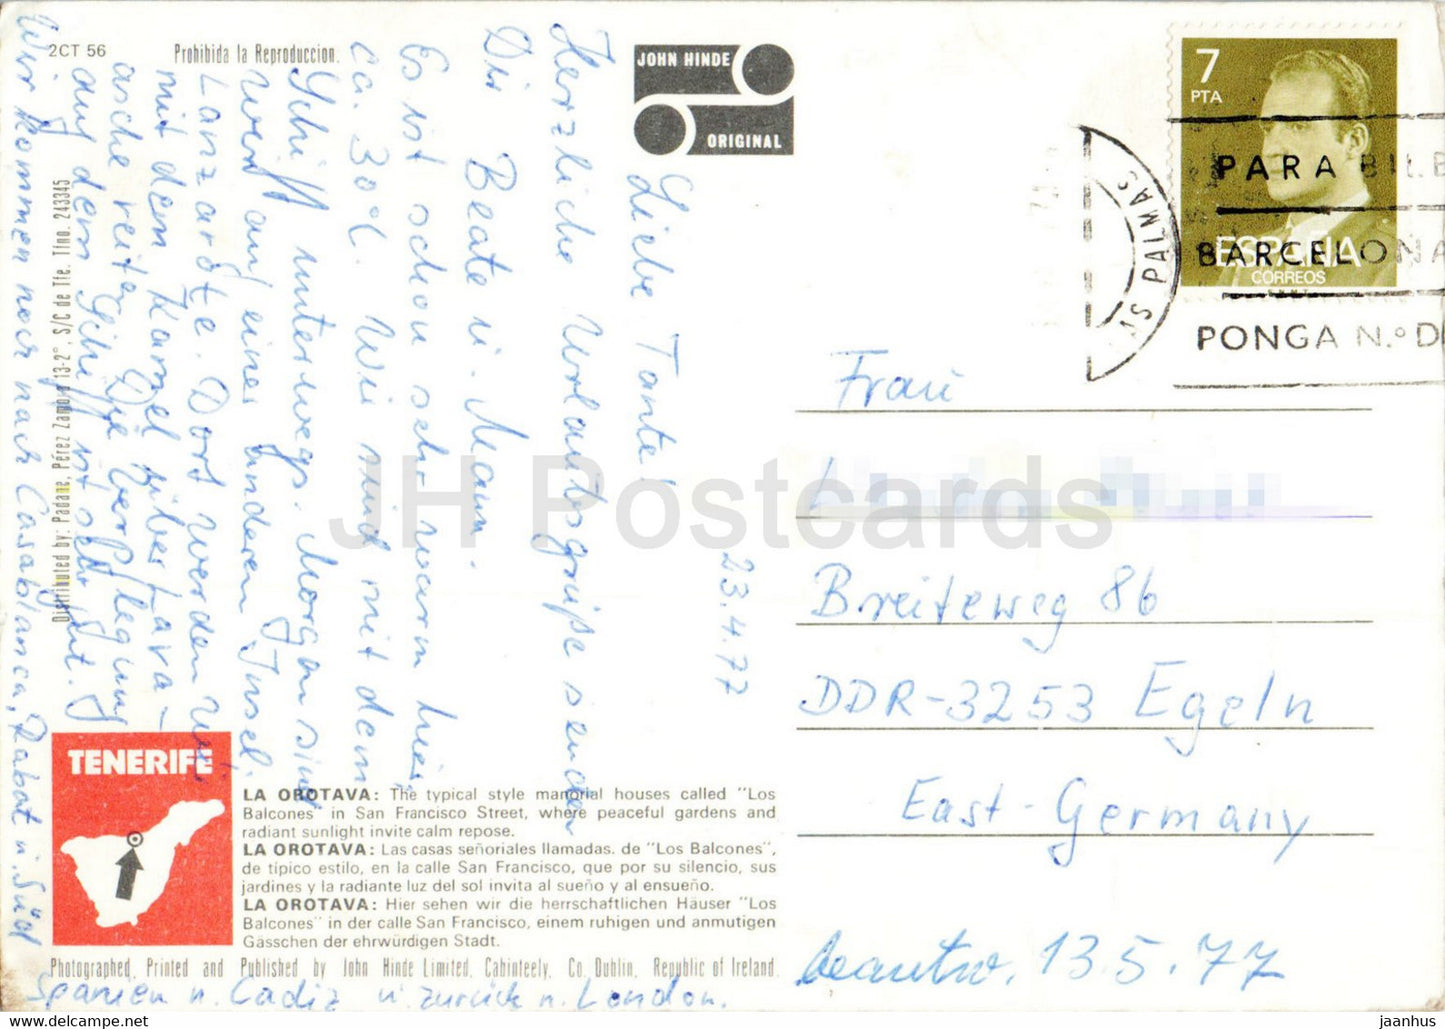 2CT 56
Prohibida la Reproduccion.
JOHN HINDE
ORIGINAL
7
PTA
ESPAÑA
CORREOS
PALMAS
PARA BILB
BARCELONA
PONGA N.º DI
23.4.77
Liebe Tante!
Herzliche Urlaubsgrüße senden
Dir Beate u. Mann.
Es ist schon sehr warm hier
ca. 30°C. Wir sind mit dem
Schiff unterwegs. Morgen sind
wir auf einer anderen Insel:
Lanzarote. Dort werden wir
mit dem Kamel über Lava-
asche reiten. Die Verpflegung
auf dem Schiff ist sehr gut.
Wir kommen noch nach Casablanca, Rabat u. Süd
Spanien n. Cadiz u. zurück n. London.
Frau
Breiteweg 86
DDR-3253 Egeln
East-Germany
beantw. 13.5.77
Distributed by: Padane, Pérez Zamora 13-2°, S/C de Tfe. Tfno. 243345
TENERIFE
LA OROTAVA: The typical style manorial houses called "Los
Balcones" in San Francisco Street, where peaceful gardens and
radiant sunlight invite calm repose.
LA OROTAVA: Las casas señoriales llamadas. de "Los Balcones",
de típico estilo, en la calle San Francisco, que por su silencio, sus
jardines y la radiante luz del sol invita al sueño y al ensueño.
LA OROTAVA: Hier sehen wir die herrschaftlichen Häuser "Los
Balcones" in der calle San Francisco, einem ruhigen und anmutigen
Gässchen der ehrwürdigen Stadt.
Photographed, Printed and Published by John Hinde Limited, Cabinteely, Co. Dublin, Republic of Ireland.
JH Postcards
hip.com
jaanhus